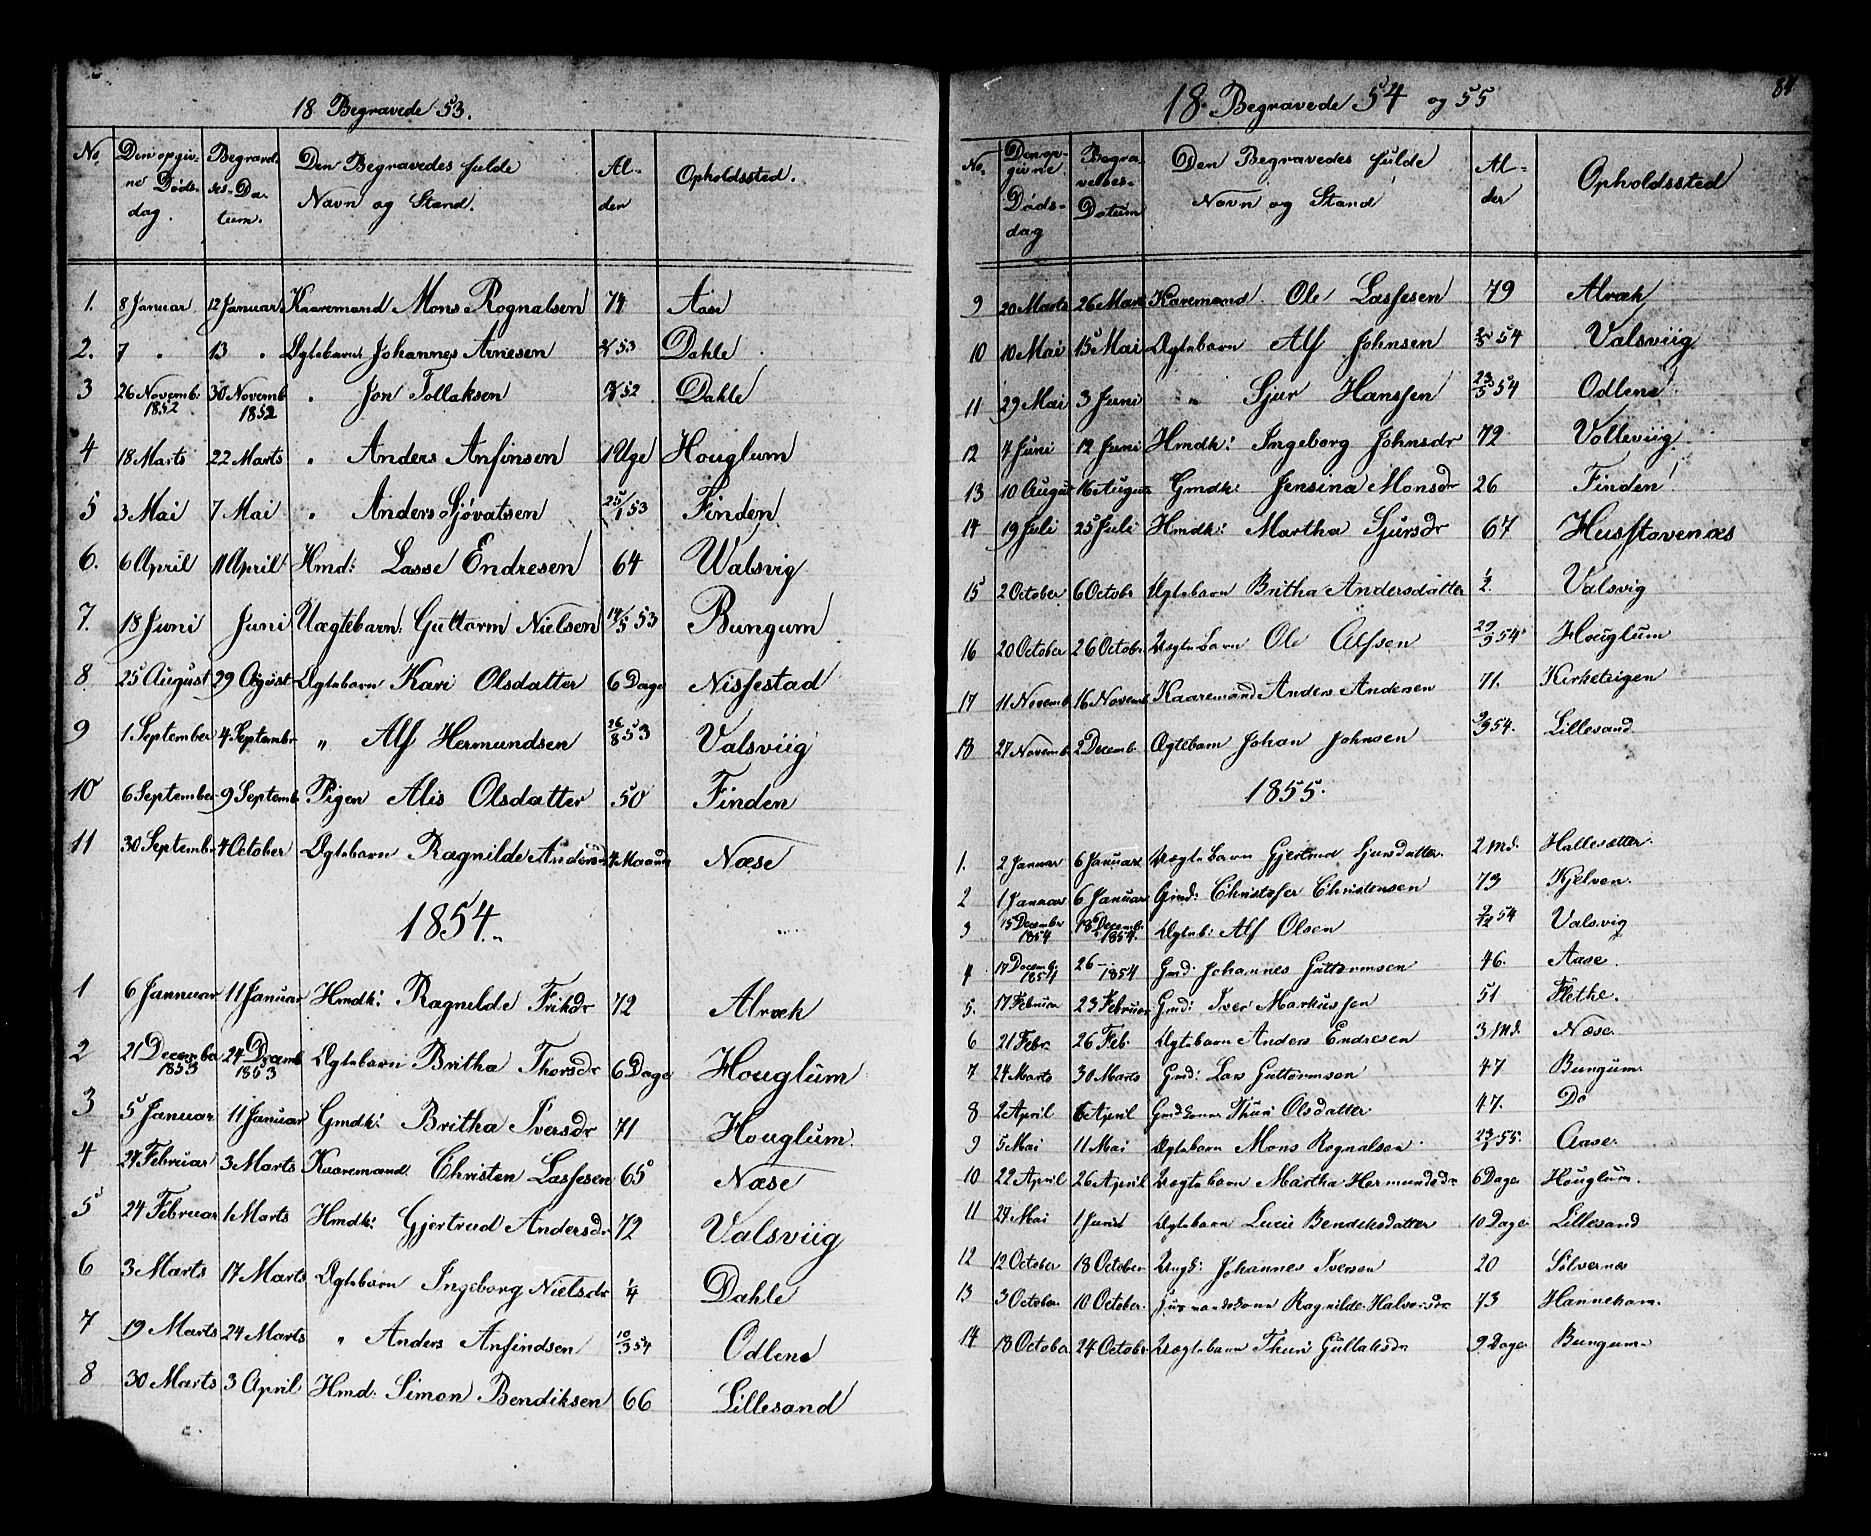 18 Begravede 53.
No. Den opgiv- Begravel- Den Begravedes fulde Al- Opholdssted.
ne Døds- ses-Da- Navn og Stand. der
dag. tum.
1. 8 Januar 12 Januar Kaaremand Mons Rognalsen 74 Aase
2. 7 " 13 " Ægtebarn Johannes Arnesen 53 Dahle
3 26 Novemb: 30 Novemb " Jon Tollaksen 52 Dahle
1852 1852
4 18 Marts 22 Marts " Anders Anfinsen 1 Uge Houglum
5 3 Mai 7 Mai " Anders Sjøvatsen 25/1 53 Finden
6. 6 April 11 April Hmd: Lasse Endresen 64 Walsvig
7. 18 Juni Juni Uægtebarn: Guttorm Nielsen 14/5 53 Bungum
8. 25 August 29 Agust Ægtebarn Kari Olsdatter 6 Dage Nissestad
9 1 September 4 Septembr " Alf Hermundsen 26/8 53 Valsviig
10 6 September 9 Septemb Pigen Alis Olsdatter 50 Finden
11 30 Septembr 4 October Ægtebarn Ragnilde Andersd 4 Maaned Næse
1854.
1 6 Jannuar 11 Januar Hmdk: Ragnilde Erikdr 72 Alræk
2 21 December 24 Decemb Ægtebarn Britha Thorsdr 6 Dage Houglum
1853 1853
3 5 Januar 11 Januar Gmdk: Britha Iversdr 71 Houglum.
4 27 Februar 3 Marts Kaaremand Christen Lassesen 65 Næse
5 24 Februar 1 Marts Hmdk: Gjertrud Andersdr 72 Valsviig
6 3 Marts 17 Marts Ægtebarn Ingeborg Nielsdr 1/4 Dahle
7 19 Marts 24 Marts " Anders Anfindsen 10/3 54 Odlene
8 30 Marts 3 April Hmd: Simon Bendiksen 66 Lillesand
18 Begravede 54 og 55 84
No. Den op- Begra- Den Begravedes fulde Al- Opholdssted
givne velses- Navn og Stand der
Døds- Datum
dag
9 20 Marts 26 Marts Karemand Ole Lassesen 79 Alræk
10 10 Mai 15 Mai Ægtebarn Alf Johnsen 2/5 54 Valsviig
11 29 Mai 3 Juni " Sjur Hanssen 23/5 54 Odlene
12 7 Juni 12 Juni Hmdk: Ingeborg Johnsdr 72 Volleviig
13 10 August 16 August Gmdk: Jensina Monsdr 26 Finden
14 19 Juli 25 Juli Hmdk: Martha Sjursdr 67 Husstavenæs
15 2 October 6 Octobr Ægtebarn Britha Andersdatter 1/2. Valsvig
16 20 October 26 Octobr Uægtebarn Ole Alfsen 29/9 54 Houglum
17 11 Novemb 16 Novemb Kaaremand Anders Andersen 71. Kirketeigen
18 27 Novemb 2 Decemb. Ægtebarn Johan Johnsen 9/9 54. Lillesand
1855.
1. 2 Januar 6 Januar Uægtebarn Gjertrud Sjursdatter. 2 Md. Hallesætter.
2 1 Januar 6 Januar Gmd: Christofer Christensen 73 Kjelven.
3 15 December 18 Decemb. Ægteb: Alf Olsen 54 Valsvig
1854 1854.
4 17 Decemb. 26 - Gmd: Johannes Guttormsen 46. Aase.
1854 1854
5. 17 Februar 23 Februar Gmd: Iver Markussen 51 Flethe.
6 21 Febr 26 Feb. Ægtebarn Anders Endresen 3 Md. Næse.
7 24 Marts 30 Marts Gmd: Lars Guttormsen 47 Bungum.
8 2 April 6 April Gmdkone Thuri Olsdatter 47. Do
9 5 Mai 11 Mai Ægtebarn Mons Rognalsen 55. Aase.
10 22 April 26 April Uægtebarn Martha Hermundsdr 6 Dage Houglum.
11 27 Mai 1 Juni Ægtebarn Lucie Bendiksdatter 10 Dage Lillesand
12 12 October 18 October Ungk: Johannes Iversen 20 Sølvernes
13 3 October 10 October. Huusmandskone Ragnilde Halvorsdr 73 Hanneham.
14 18 October 24 Octobr. Uægtebarn Thuri Gullaksdr 9 Dage Bungum.